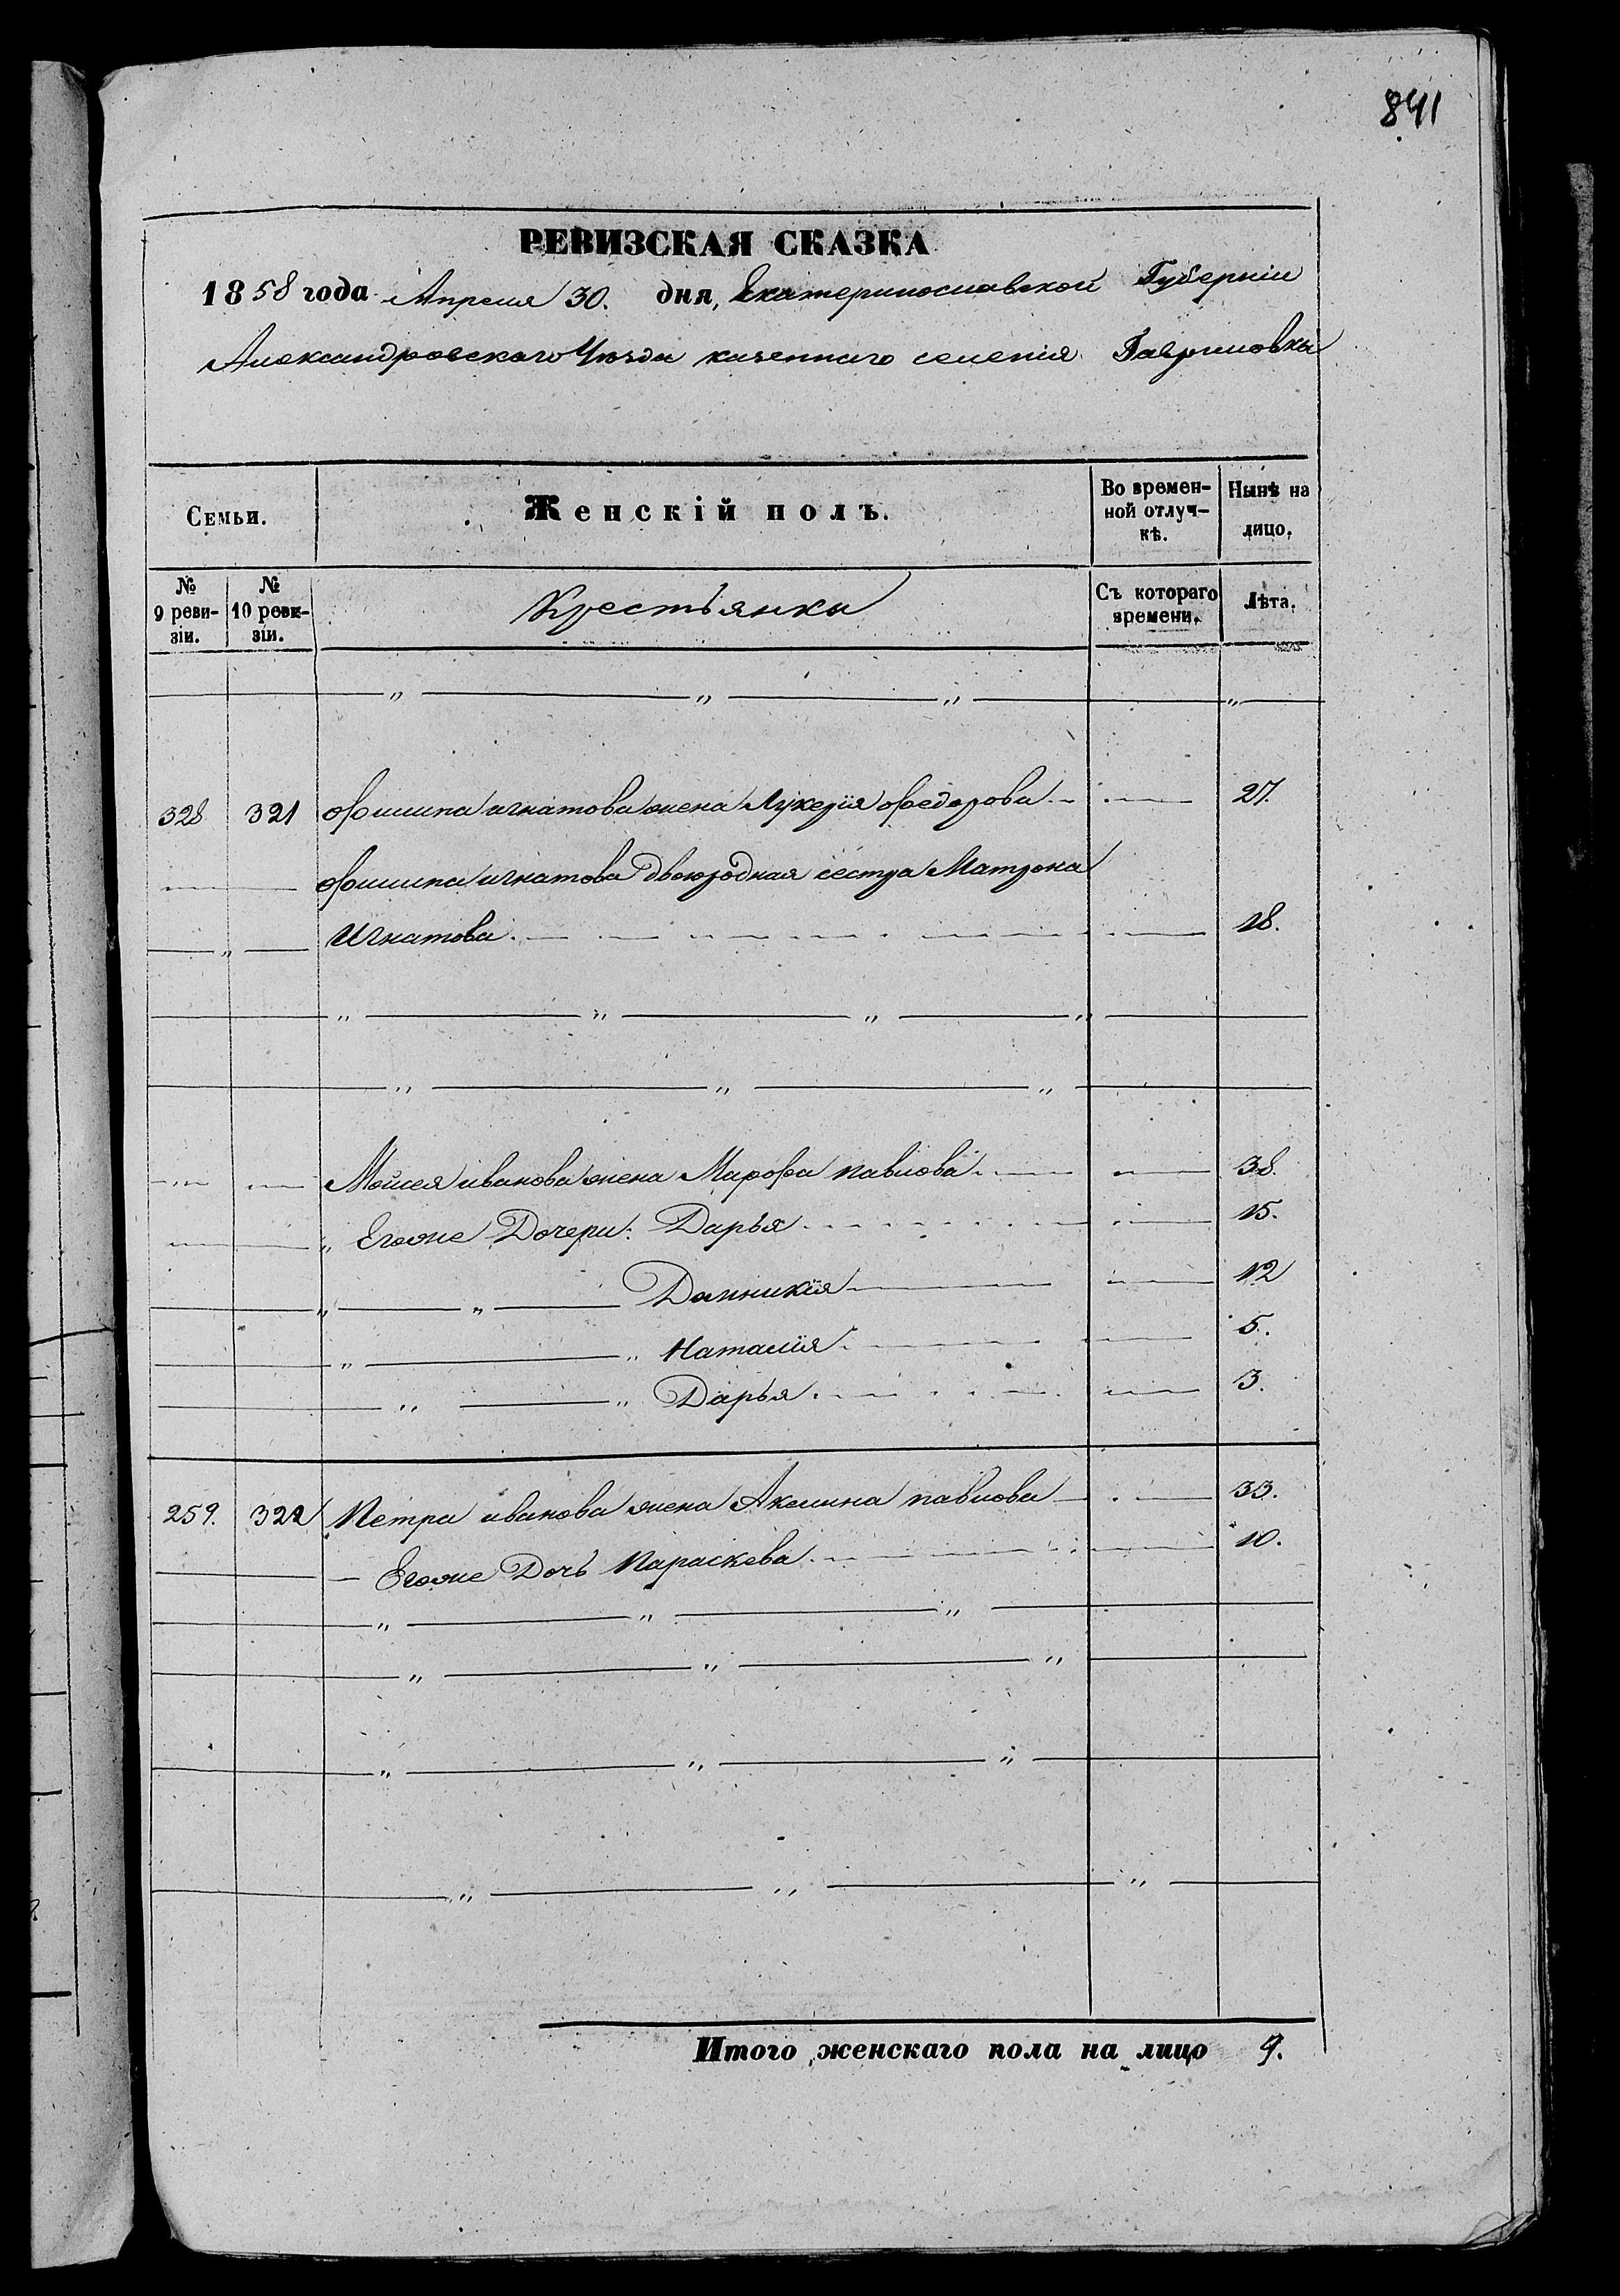 841
РЕВИЗСКАЯ СКАЗКА
1858 года Апреля 30. дня, Екатеринославской Губерніи
Александровскаго Уѣзда казеннаго селенія Гавриловки
Семьи.
Женскій полъ.
Во времен-
ной отлуч-
кѣ.
Нынѣ на
лицо.
№
9 реви-
зіи.
№
10 реви-
зіи.
Крестьянки
Съ котораго
времени.
Лѣта.
328 321 Филипа игнатова жена Лукерія Федорова 27.
Филипа игнатова Двоюродная сестра Матрона
Игнатова 18.
Мойсея иванова жена Марфа павлова 38.
Егоже Дочери: Дарья 15.
Домникія 12
Наталія 5.
Дарья 3.
259. 322 Петра иванова жена Акелина павлова 33.
Егоже Дочь Параскева 10.
Итого женскаго пола на лицо 9.